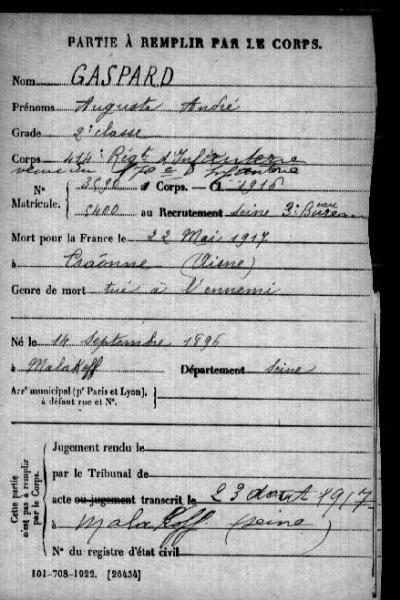 PARTIE À REMPLIR PAR LE CORPS.
Nom GASPARD
Prénoms Auguste André
Grade 2e classe
Corps 414e Régt d'Infanterie
venu du 170e d'Infanterie
N° Matricule. 3590 au Corps. — Cl. 1916
5400 au Recrutement Seine 3e Bureau
Mort pour la France le 22 Mai 1917
à Craonne (Aisne)
Genre de mort tué à l'ennemi
Né le 14 septembre 1896
à Malakoff Département Seine
Arrt municipal (pr Paris et Lyon), à défaut rue et N°.
Cette partie n'est pas à remplir par le Corps.
Jugement rendu le
par le Tribunal de
acte ou jugement transcrit le 23 août 1917
à Malakoff (Seine)
N° du registre d'état civil
101-708-1922. [26434]